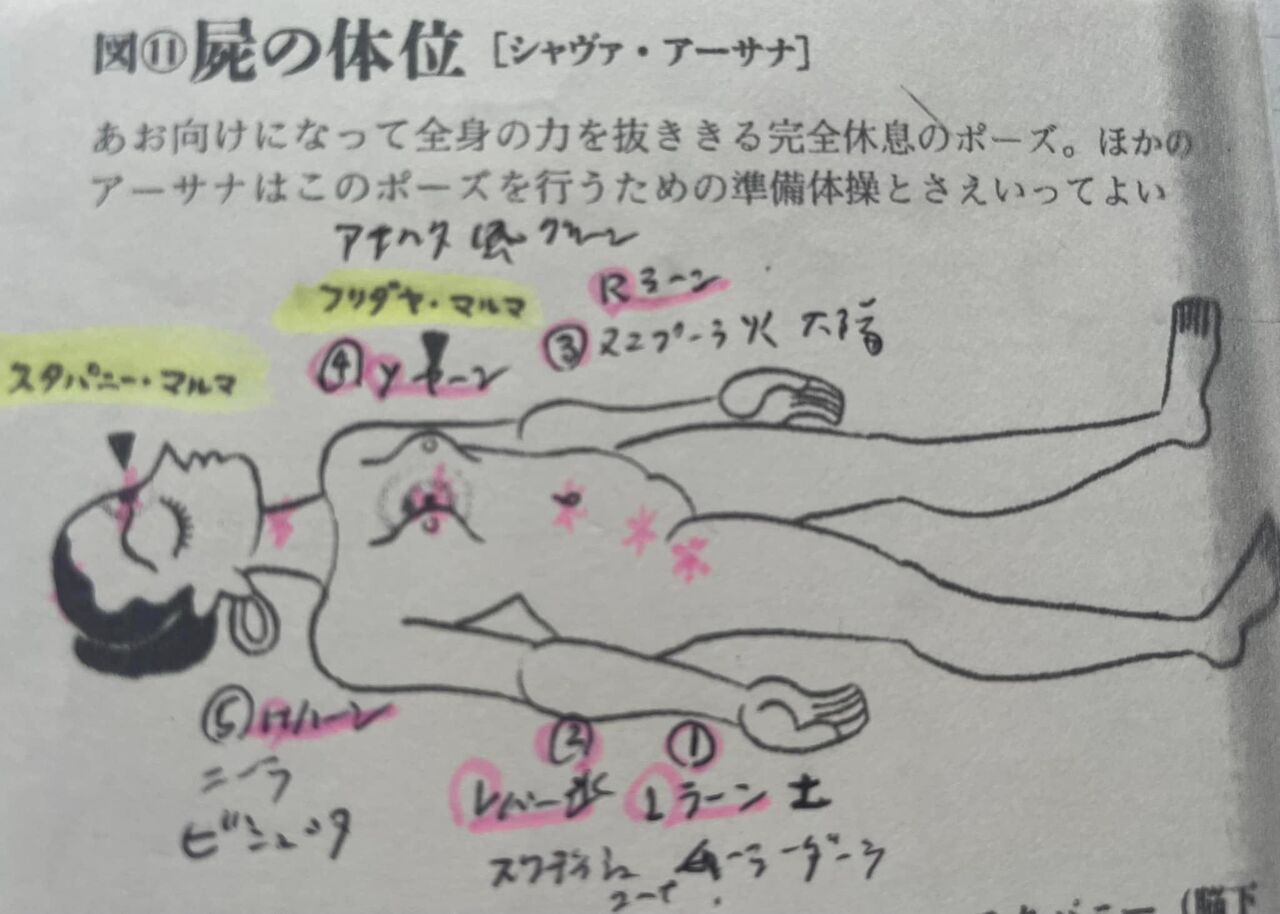 図⑪屍の体位［シャヴァ・アーサナ］
あお向けになって全身の力を抜ききる完全休息のポーズ。ほかの
アーサナはこのポーズを行うための準備体操とさえいってよい
アナハタ 風 グリーン
フリダヤ・マルマ
Rラーン
スタパニー・マルマ
④ Y ヤーン
③ マニプーラ 火 太陽
⑤ ハーン
ビシュッタ
②
①
レバー 水
Lラーン 土
スワディシュ
ターナ
ムーラーダーラ
パニー（脳下